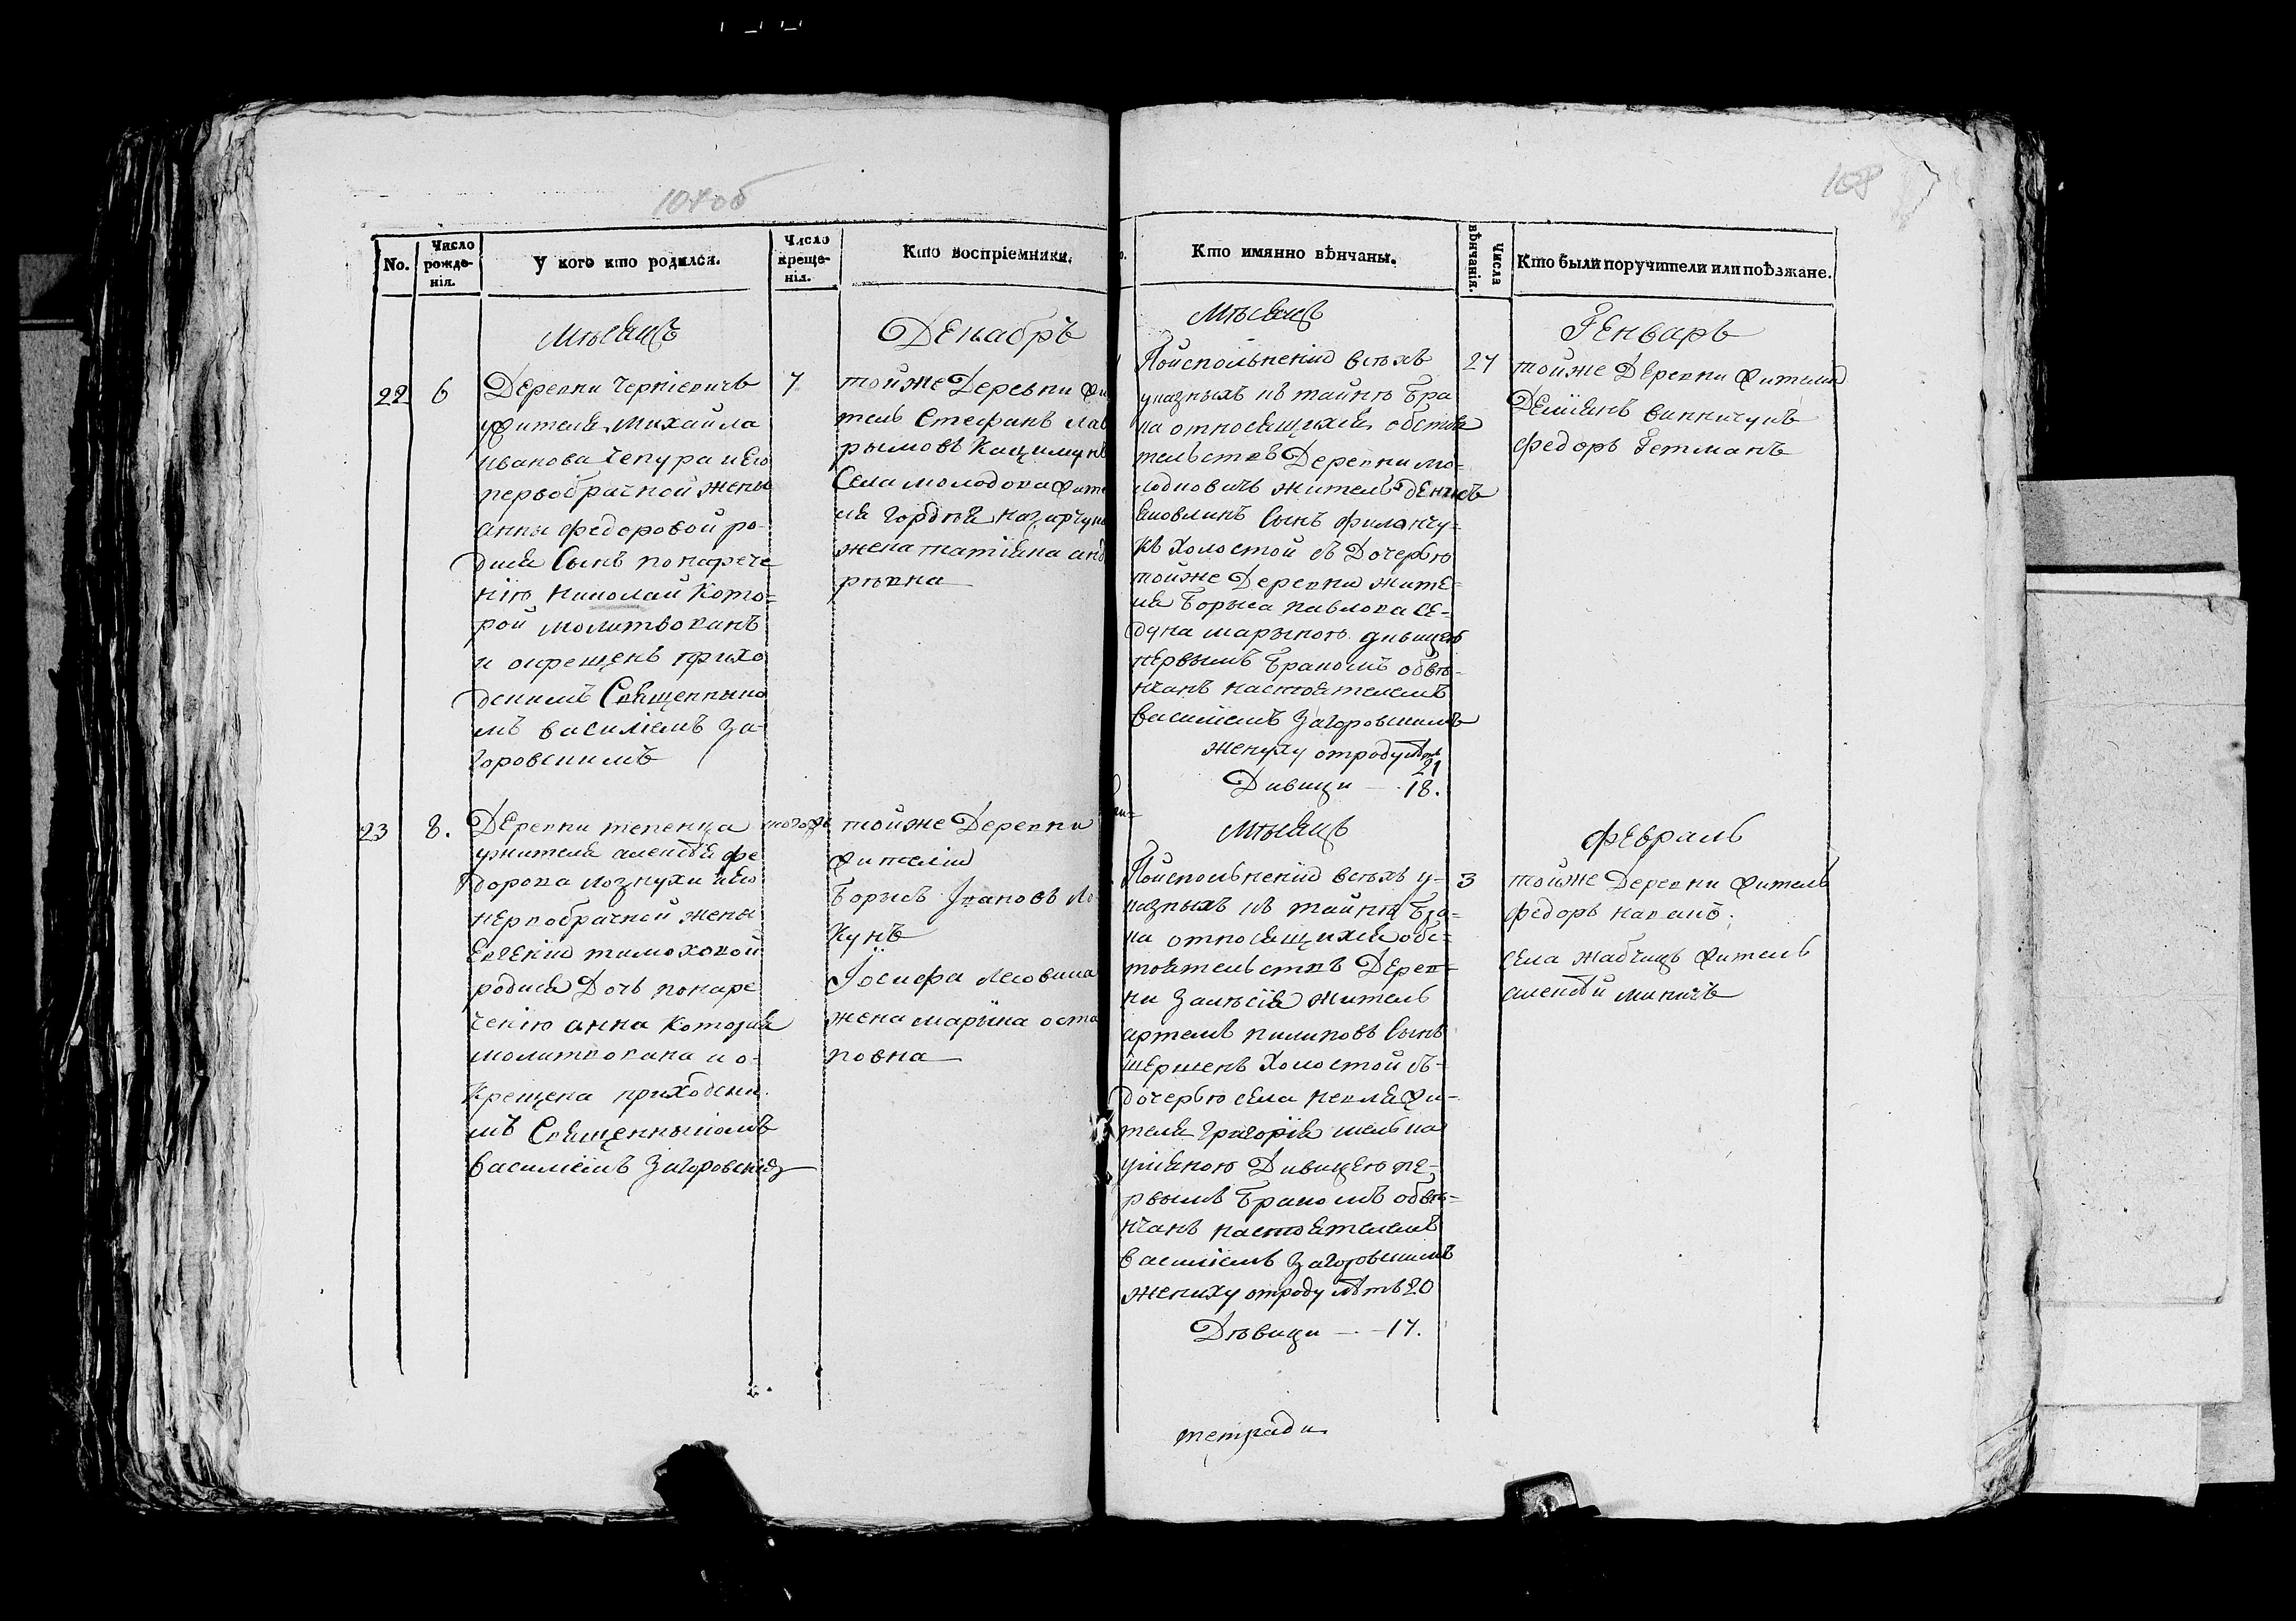 107об
No.
Число рожде-
нія.
У кого кто родился.
Число
креще-
нія.
Кто воспріемники.
Мѣсяцъ
Декабрь
22 6 Деревни Черніевичъ 7
жителя Михайла
Иванова Чепура и Его
первобрачной жены
анны федоровой ро-
дился Сынъ по нарече
нію Николай Кото-
рой молитвованъ
и окрещенъ прихо
дскимъ Священнико
мъ василіемъ За-
горовскимъ
тойже Деревни жи
тель Стефанъ Лав
рымовъ
Села молодова жите
ля
жена татіяна анд
рѣвна
23 8. Деревни тепенца тогожъ
жителя алексѣя фе
дорова Лознухи и Его
первобрачной жены
Евгеніи тимоховой
родися Дочь по наре
ченію анна Которая
молитвована и о-
Крещена приходски
мъ Священникомъ
василіемъ Загоровскимъ
тойже Деревни
жители
Борысъ Івановъ Ло
кунъ
Іосифа Лесовика
жена марьіна оста
повна
108
Кто имянно вѣнчаны.
Числа
вѣнчанія.
Кто были поручители или поѣзжане.
Мѣсяцъ
Генварь
Поисполненіи всѣхъ 27
указныхъ къ тайнѣ Бра
ка относящихся обстоя
тельствъ Деревни мо-
лодковичъ житель денисъ
Яковлинъ Сынъ филончу-
къ Холостой съ Дочерью
тойже Деревни жите-
ля Борыса павлова Се-
дуна марыною дивицею
первымъ Бракомъ обвѣ-
нчанъ настоятелемъ
василіемъ Загоровскимъ
жениху отроду лѣтъ
21
Дивици — 18.
тойже Деревни жители
Деміянъ винничукъ
федоръ Гетманъ
Мѣсяцъ
февраль
Поисполненіи всѣхъ у- 3
казныхъ къ тайнѣ Бра-
ка относящихся обс-
тоятельствъ Дерев-
ни Залѣсія житель
артемъ пилиповъ Сынъ
шершенъ Холостой съ
дочерью села невля жи-
теля Григорія мельника
уліяною Дивицею пе-
рвымъ Бракомъ обвѣ-
нчанъ настоятелемъ
василіемъ Загоровскимъ
жениху отроду лѣтъ 20
Дѣвици — 17.
тойже Деревни житель
федоръ
села жабчицъ житель
алексѣй миничъ
тетради